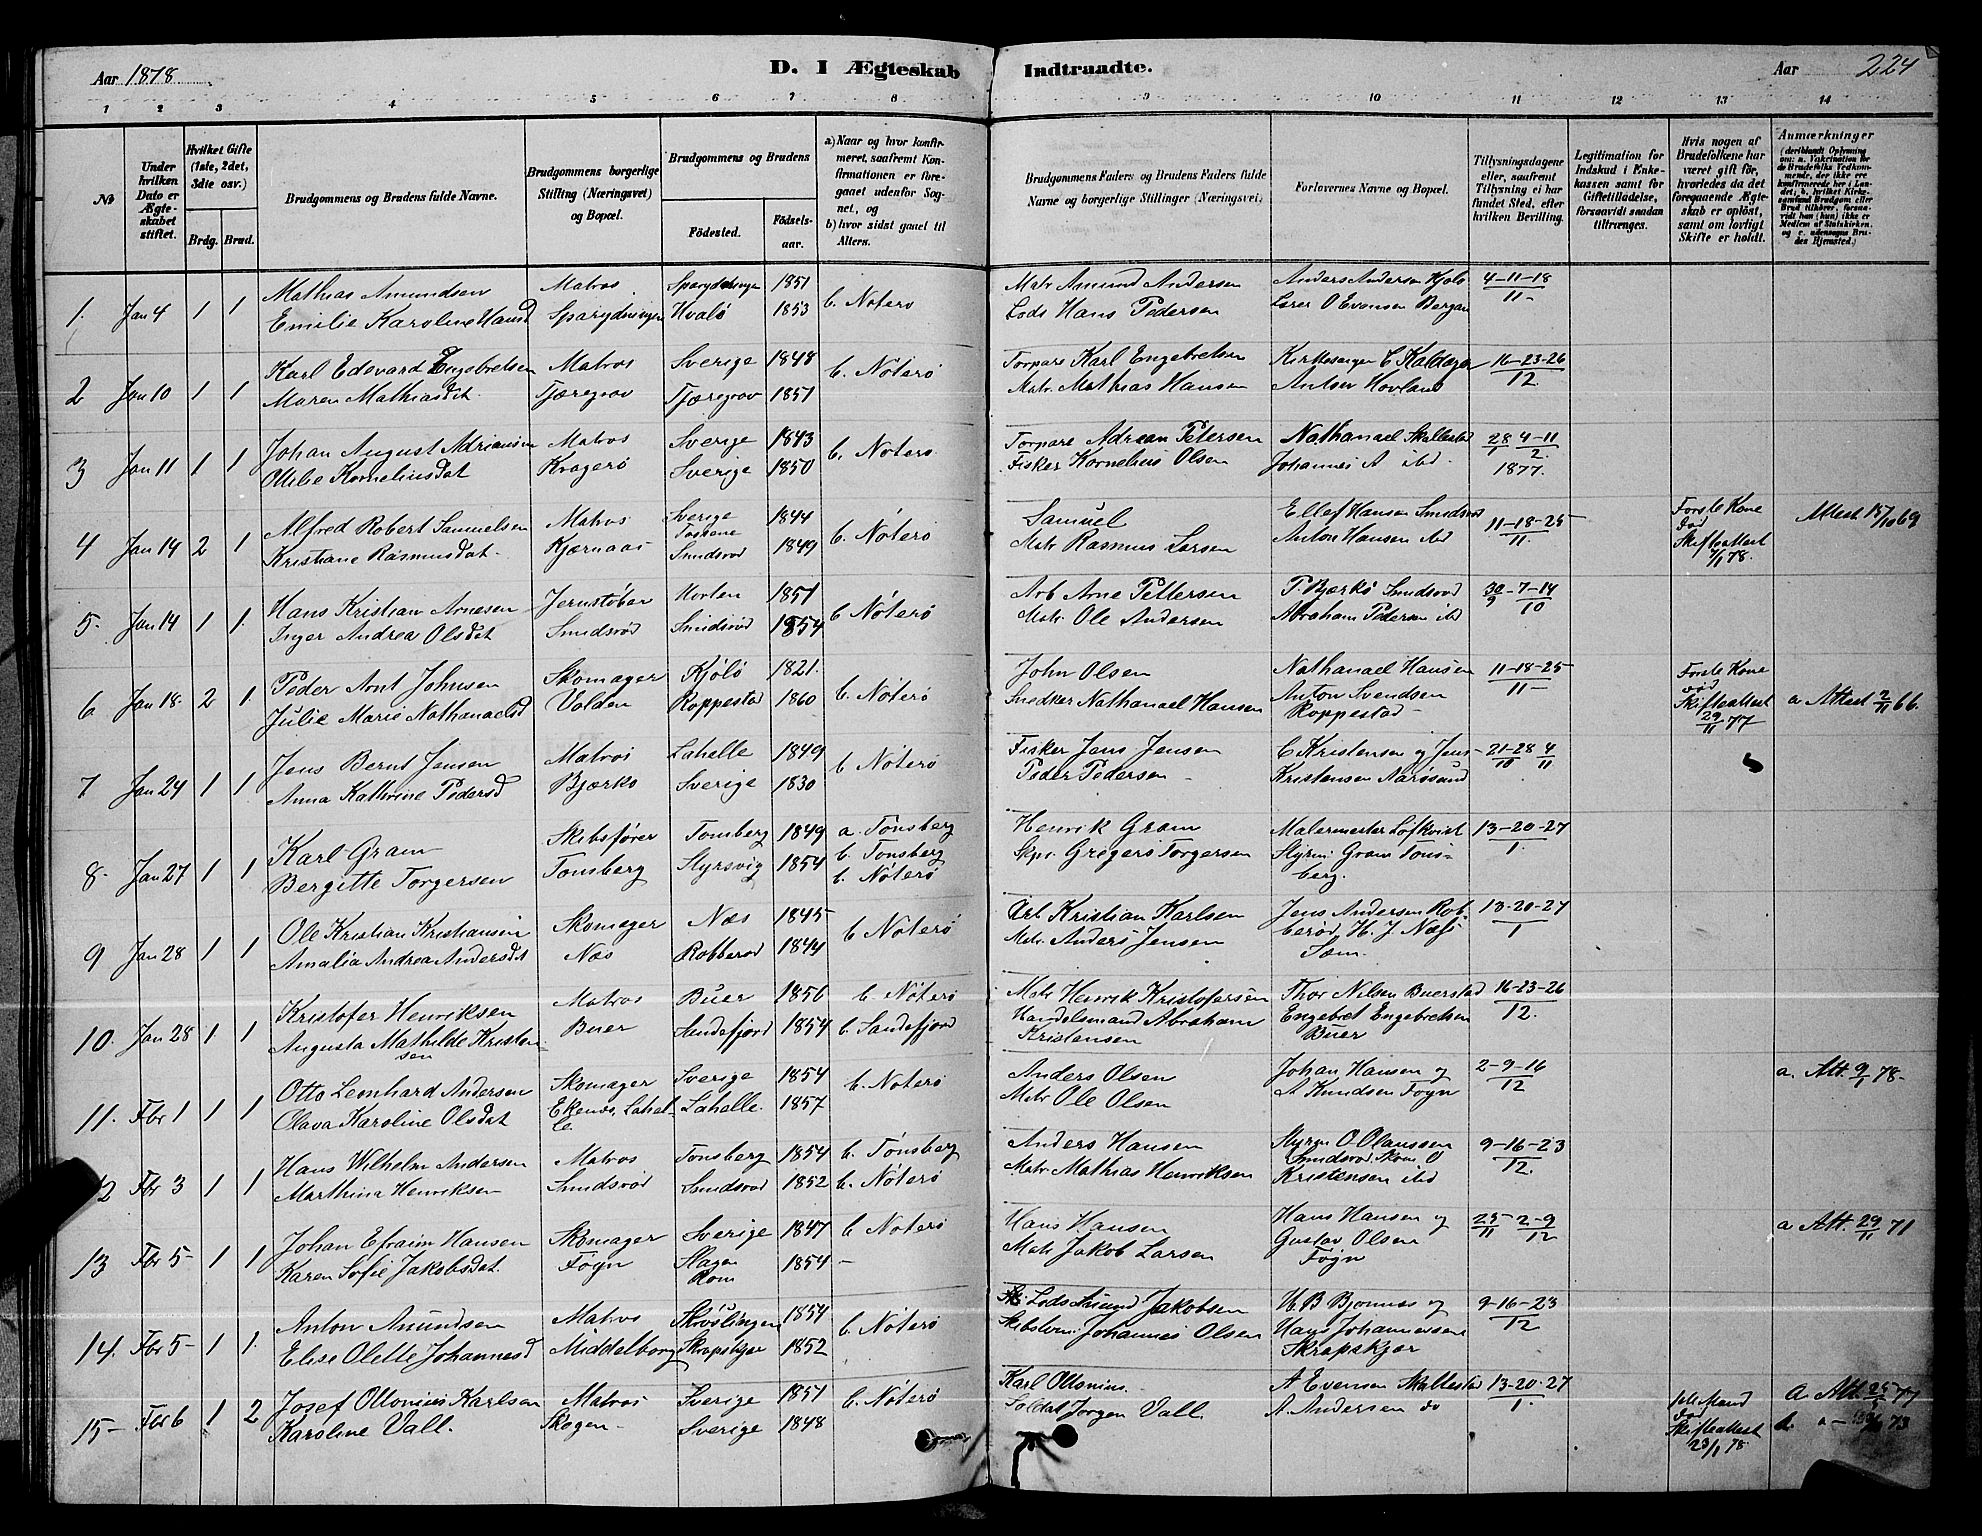 Aar 1878
D. I Ægteskab Indtraadte.
Aar
224
1 2 3 4 5 6 7 8 9 10 11 12 13 14
№
Under hvilken Dato er Ægteskabet stiftet.
Hvilket Gifte (1ste, 2det, 3die osv.)
Brdg. Brud.
Brudgommens og Brudens fulde Navne.
Brudgommens borgerlige Stilling (Næringsvei) og Bopæl.
Brudgommens og Brudens
Fødested.
Fødselsaar.
a) Naar og hvor konfirmeret, saafremt Konfirmationen er foregaaet udenfor Sognet, og
b) hvor sidst gaaet til Alters.
Brudgommens Faders og Brudens Faders fulde Navne og borgerlige Stillinger (Næringsvei)
Forlovernes Navne og Bopæl.
Tillysningsdagene eller, saafremt Tillysning ei har fundet Sted, efter hvilken Bevilling.
Legitimation for Indskud i Enkekassen samt for Giftetilladelse, forsaavidt saadan tiltrænges.
Hvis nogen af Brudefolkene har været gift før, hvorledes da det foregaaende Ægteskab er opløst, samt om lovligt Skifte er holdt.
Anmærkninger
1. Jan 4 1 1 Mathias Amundsen Matros 1851 b. Nøterø Matr Amund Andersen Anders Andersen Kjølø 4-11-18
Emilie Karoline Hansd Hvalø 1853 Lods Hans Pedersen Lærer O Evensen Bergan 11
2 Jan 10 1 1 Karl Edevard Engebretsen Matros Sverige 1848 b. Nøterø Torpare Karl Engebretsen Kirkesanger C Kaldager 16-23-26
Maren Mathiasdt. Tjæregrav Tjæregrav 1851 Matr. Mathias Hansen Antsen Hovland 12
3 Jan 11 1 1 Johan August Adriansen Matros Sverige 1843 b. Nøterø Torpare Adrean Petersen Nathanael Skallestad 28/1 4-11/2
Ottilie Korneliusdat Kragerø Sverige 1850 Fisker Kornelius Olsen Johannes A ibd. 1877.
4 Jan 14 2 1 Alfred Robert Samuelsen Matros Sverige Tossene 1844 b. Nøterø Samuel Ellef Hansen Smidsrød 11-18-25 Første Kone død Attest 15/10 69
Kristiane Rasmusdat. Kjærnaas Smidsrød 1849 Matr Rasmus Larsen Anton Hansen ibd 11. Skifteattest 7/1 78.
5- Jan 14 1 1. Hans Kristian Arnesen Jernstøber Horten 1851 b Nøterø Arb Arne Pettersen P. Bjerkø Smidsrød 30/9-7-14
Inger Andrea Olsdat Smidsrød Smidsrød 1854 Matr. Ole Andersen Abraham Pedersen ibd 10
6 Jan 18. 2 1. Peder Arnt Johnsen Skomager Kjølø 1821. b. Nøterø John Olsen Nathanael Hansen 11-18-25 Første Kone død
Julie Marie Nathanaelsd Volden Roppestad 1860 Snedker Nathanael Hansen Anton Svendsen Roppestad 11 Skifteattest 29/11 77 a Attest 2/11 66.
7 Jan 24 1 1 Jens Bernt Jensen Matros Lahelle 1849 b Nøterø Fisker Jens Jensen C Kristensen og Jens 21-28 4
Anna Kathrine Pedersd Bjerkø Sverige 1830 Peder Pedersen Kristensen Narøsund 10 11
8- Jan 27 1 1 Karl Gram Skibsfører Tønsberg 1849 a. Tønsberg b. Tønsberg Henrik Gram Malermester Løfkvist 13-20-27
Bergitte Torgersen Tønsberg Styrsvig 1854 b. Nøterø Skpr. Gregers Torgersen Styrm. Gram Tønsberg. 1.
9 Jan 28 1 1 Ole Kristian Kristiansen Skomager Næs 1845 b Nøterø Arb Kristian Karlsen Jens Andersen Robberød, H. J Næs 13-20-27
Amalia Andrea Andersdt Næs Robberød 1844 Matr. Anders Jensen 1
10. Jan 28 1 1 Kristofer Henriksen Matros Buer 1856 b. Nøterø Matr Henrik Kristofersen Thor Nilsen Buerstad 16-23-26
Augusta Mathilde Kristensen Buer Sandefjord 1854 b. Sandefjord Handelsmand Abraham Kristensen Engebret Engebretsen Buer 12.
11. Fbr 1 1 1 Otto Leonhard Andersen Skomager Sverige 1854 b. Nøterø Anders Olsen Johan Hansen og 2-9-16 a. Att. 9/1 78-
Olava Karoline Olsdat Ekenes, Lahelle Lahelle. 1857 Matr Ole Olsen A Knudsen Føyn 12
12 Fbr 3 1 1 Hans Wilhelm Andersen Matros Tønsberg 1854 b. Tønsberg Anders Hansen Styrm O. Olaussen 9-16-23
Marthina Henriksen Smidsrød Smidsrød 1852 b. Nøterø Matr Mathias Henriksen Smidsrød, Skom. O Kristensen ibd 12.
13 Fbr 5- 1 1 Johan Efraim Hansen Skomager Sverige 1847 b Nøterø Hans Hansen Hans Hansen og 25/11-2-9 a Att. 29/11 71
Karen Sofie Jakobsdat. Føyn Slagen Rom 1854 - Matr Jakob Larsen Gustav Olsen Føyn 12
14. Fbr 5- 1 1. Anton Amundsen Matros Skrøslingen 1854 b. Nøterø Lods Amund Jakobsen H. B Bjønnes og 9-16-23
Elise Olette Johannesd Middelborg Skrapskjær 1852 Johannes Olsen Hans Johannessen Skrapskjær 12
15- Fbr 6 1 2 Josef Ottonius Karlsen Matros Sverige 1851 b. Nøterø Karl Ottonius. A Evensen Skallestad 13-20-27 1ste Mand død a Att. 25/ 77
Karoline Vall. Skogen Sverige 1848 Soldat Jørgen Vall. A Andersen do 1. Skifteattest 23/1 78 73